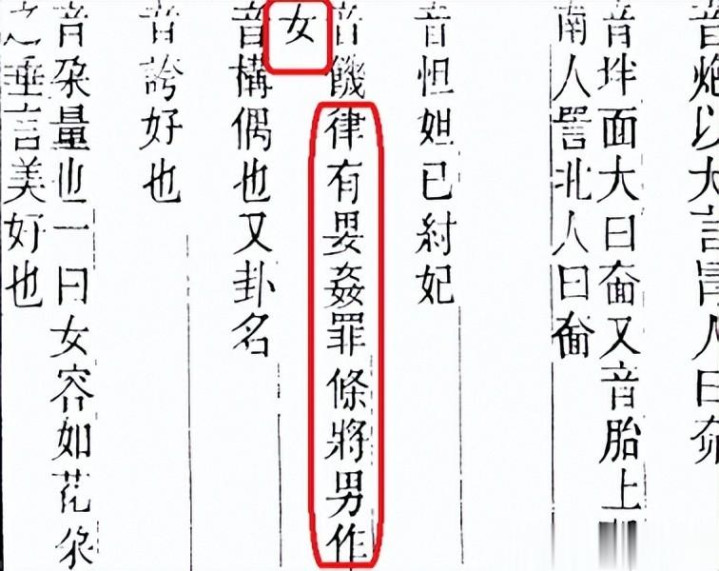 音炮以大言冒人曰奅
音坢面大曰奤又音胎上
南人詈北人曰奤
音怛妲已紂妃
音饑律有㚻姦罪條將男作
女
音構偶也又卦名
音誇好也
音朶量也一曰女容如花朶
之垂言美好也